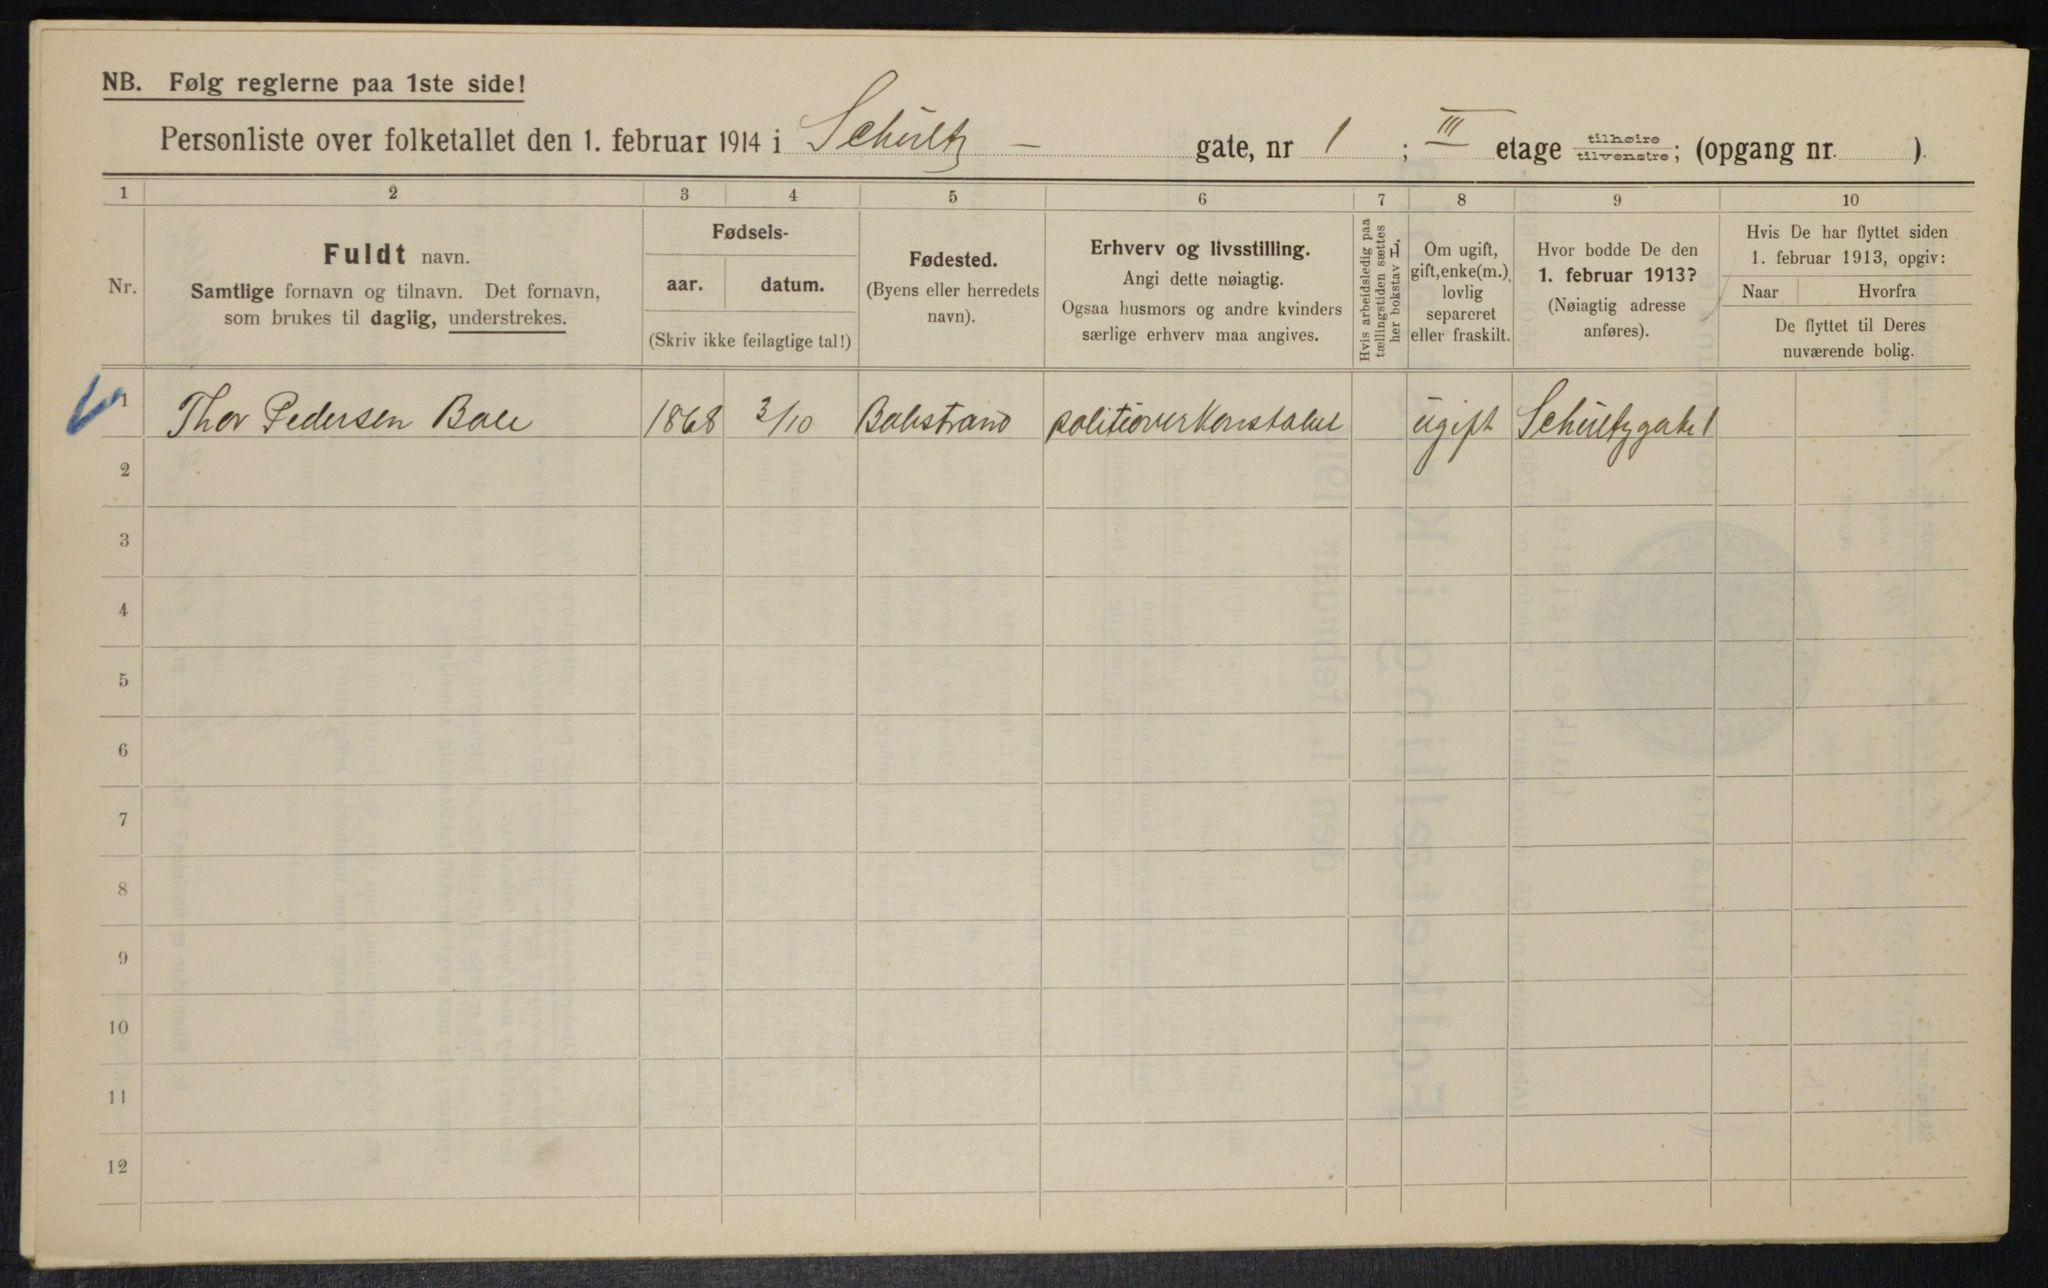 NB. Følg reglerne paa 1ste side!
Personliste over folketallet den 1. februar 1914 i Schültz - gate, nr 1 ; III etage tilhøire/tilvenstre; (opgang nr. ).
1 2 3 4 5 6 7 8 9 10
Nr.
Fuldt navn.
Samtlige fornavn og tilnavn. Det fornavn,
som brukes til daglig, understrekes.
Fødsels-
aar. datum.
(Skriv ikke feilagtige tal!)
Fødested.
(Byens eller herredets
navn).
Erhverv og livsstilling.
Angi dette nøiagtig.
Ogsaa husmors og andre kvinders
særlige erhverv maa angives.
Hvis arbeidsledig paa
tællingstiden sættes
her bokstav L.
Om ugift,
gift, enke(m.),
lovlig
separeret
eller fraskilt.
Hvor bodde De den
1. februar 1913?
(Nøiagtig adresse
anføres).
Hvis De har flyttet siden
1. februar 1913, opgiv:
Naar Hvorfra
De flyttet til Deres
nuværende bolig.
1 Thor Pedersen 1868 3/10 ugift Schültzgate 1
2
3
4
5
6
7
8
9
10
11
12